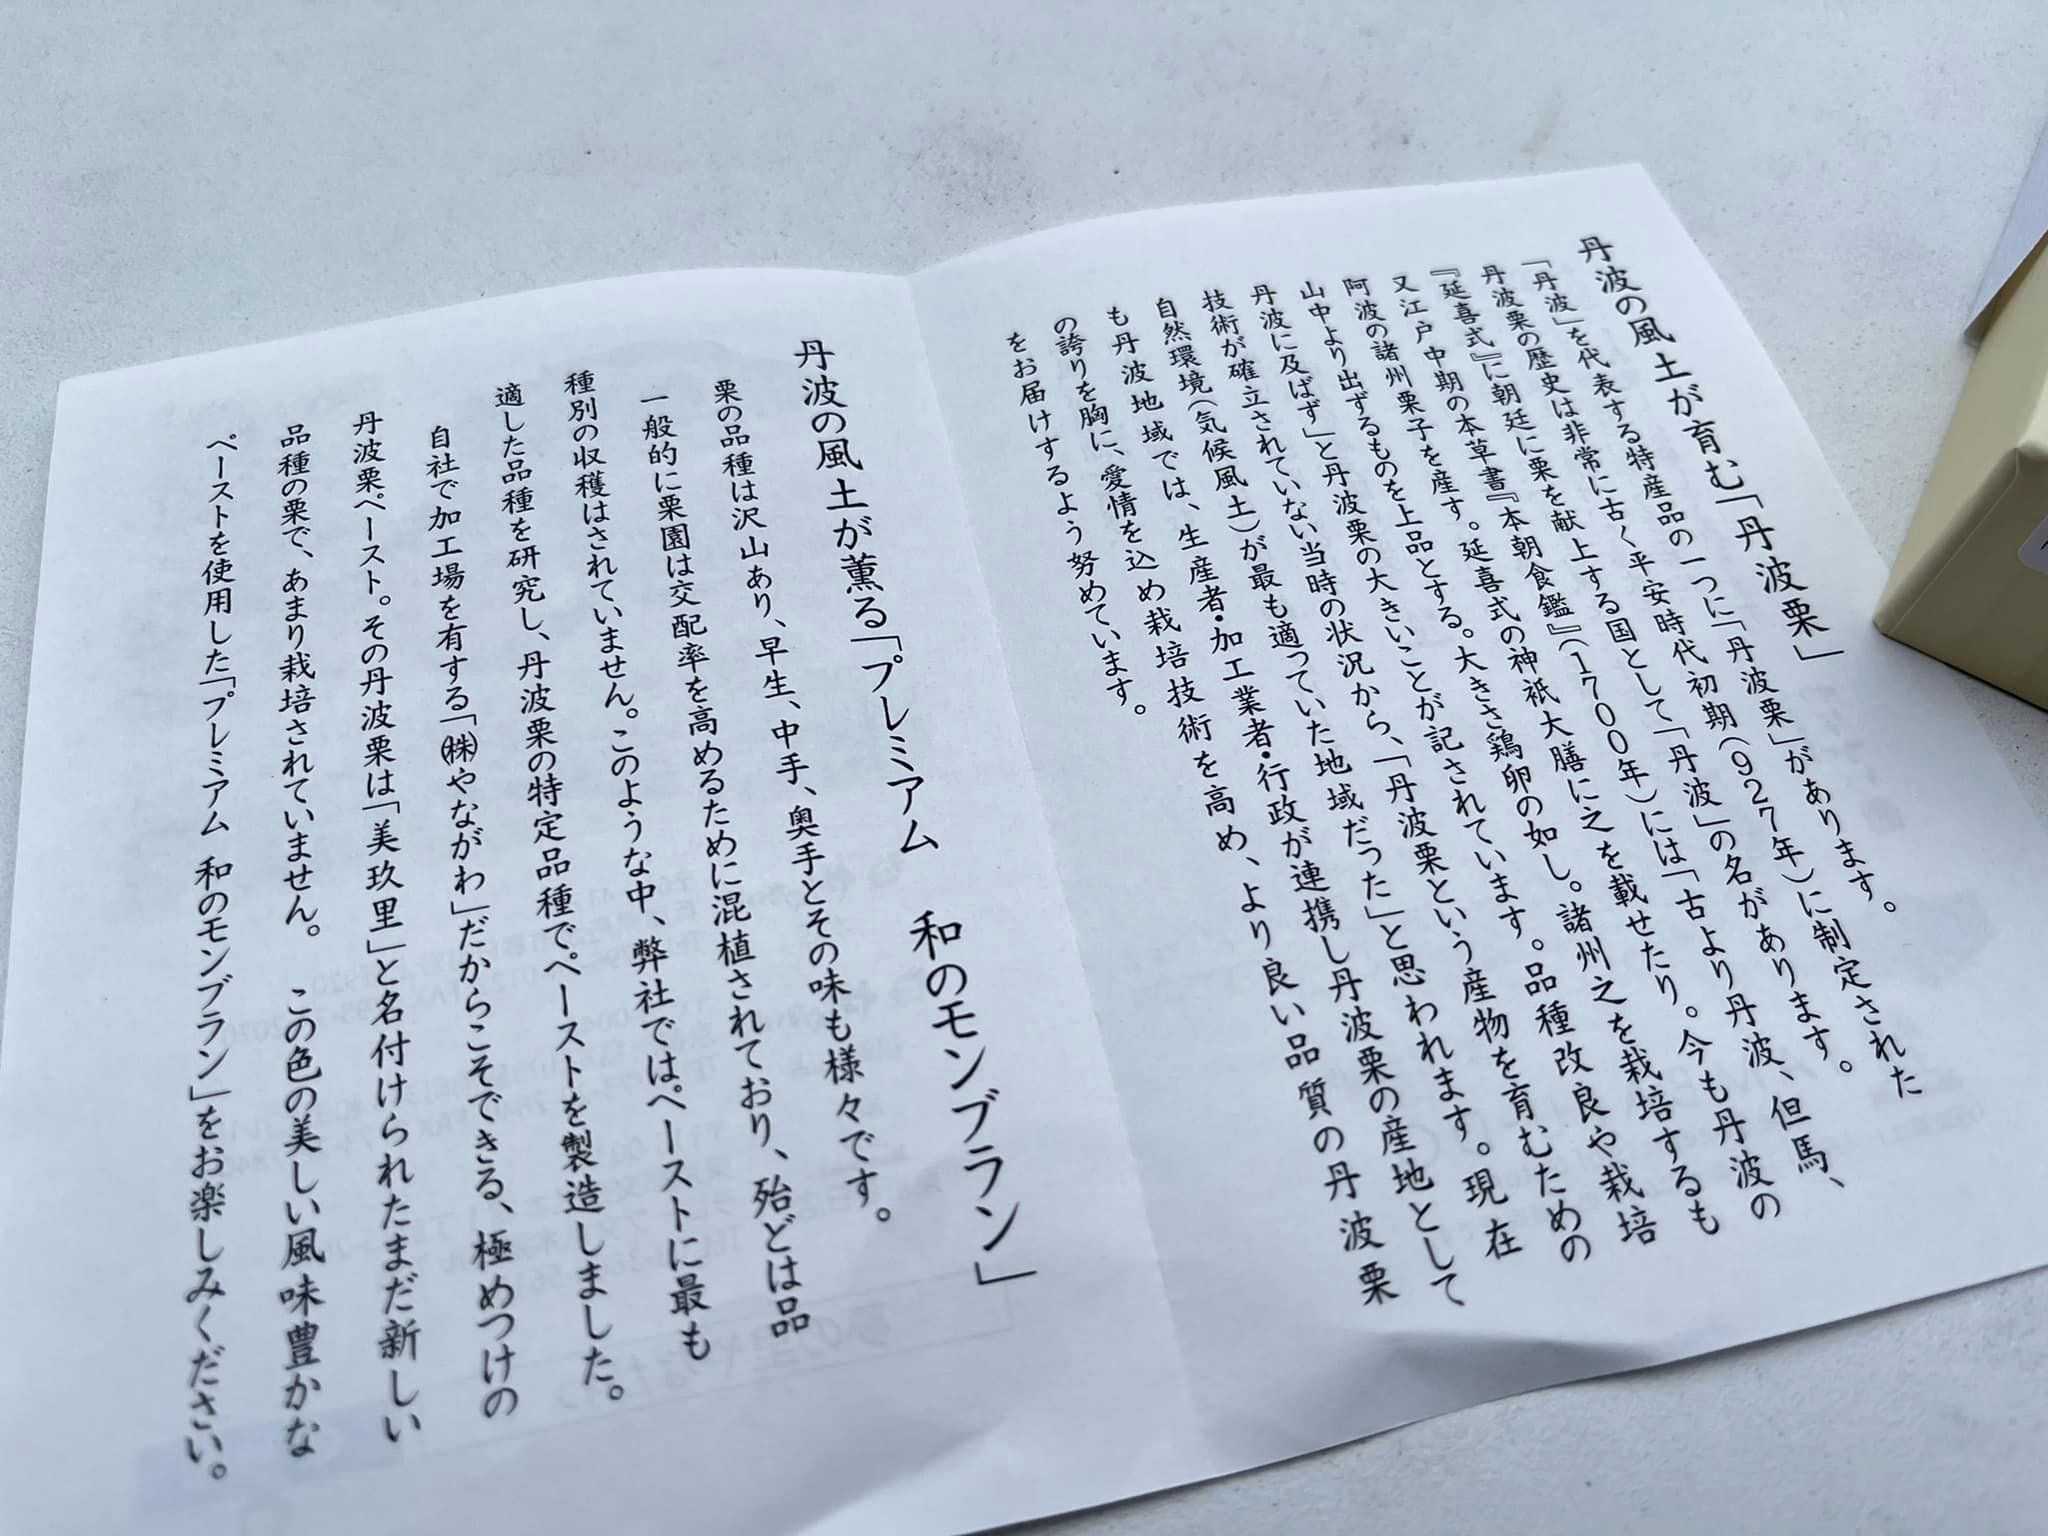 丹波の風土が育む「丹波栗」
「丹波」を代表する特産品の一つに「丹波栗」があります。
丹波栗の歴史は非常に古く平安時代初期(927年)に制定された
『延喜式』に朝廷に栗を献上する国として「丹波」の名があります。
又江戸中期の本草書『本朝食鑑』(1700年)には「古より丹波、但馬、
阿波の諸州栗子を産す。延喜式の神祇大膳に之を載せたり。今も丹波の
山中より出ずるものを上品とする。大きさ鶏卵の如し。諸州之を栽培するも
丹波に及ばず」と丹波栗の大きいことが記されています。品種改良や栽培
技術が確立されていない当時の状況から、「丹波栗という産物を育むための
自然環境(気候風土)が最も適っていた地域だった」と思われます。現在
も丹波地域では、生産者・加工業者・行政が連携し丹波栗の産地として
の誇りを胸に、愛情を込め栽培技術を高め、より良い品質の丹波栗
をお届けするよう努めています。
丹波の風土が薫る「プレミアム 和のモンブラン」
栗の品種は沢山あり、早生、中手、奥手とその味も様々です。
一般的に栗園は交配率を高めるために混植されており、殆どは品
種別の収穫はされていません。このような中、弊社ではペーストに最も
適した品種を研究し、丹波栗の特定品種でペーストを製造しました。
自社で加工場を有する「㈱やながわ」だからこそできる、極めつけの
丹波栗ペースト。その丹波栗は「美玖里」と名付けられたまだ新しい
品種の栗で、あまり栽培されていません。 この色の美しい風味豊かな
ペーストを使用した「プレミアム 和のモンブラン」をお楽しみください。